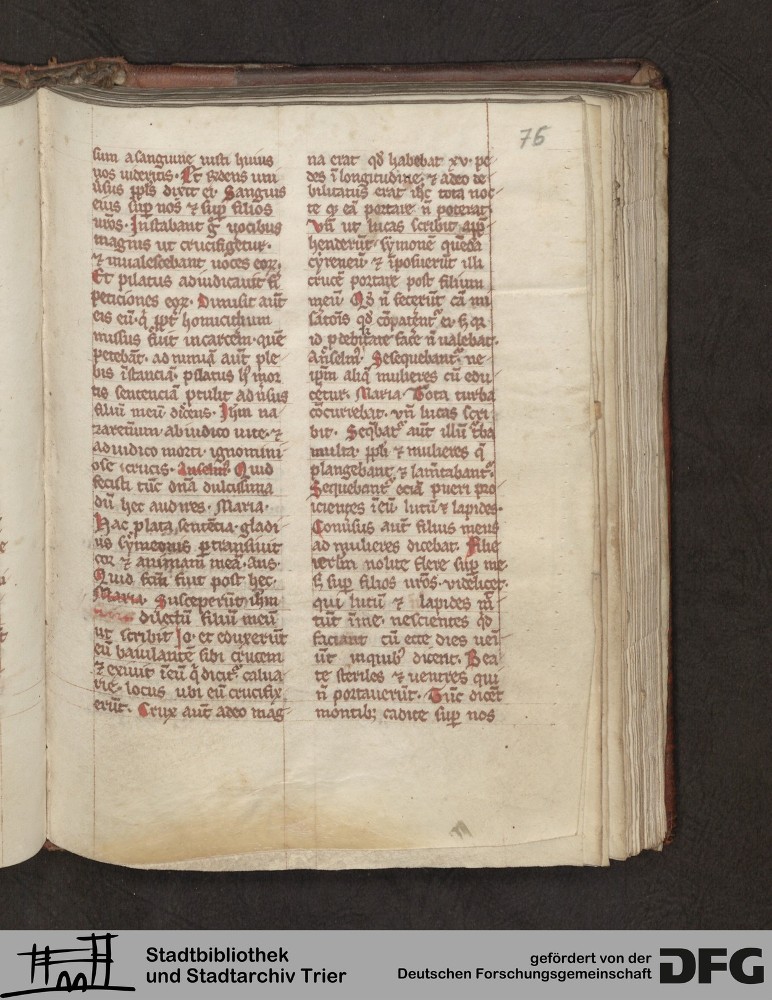 76
sum a sanguine iusti huius
uos uideritis. Et R̄dens uni
úsus ppl̄s dixit ei. Sanguis
eius suꝑ nos ⁊ suꝑ filios
nr̄os. Instabant g̊ uocibus
magnis ut crucifigetur.
⁊ inualescebant uoces eoꝝ.
Et pilatus adiudicauit fi̅
peticiones eoꝝ. Dimisit aut̄
eis eū. q̇ ꝓpt̄ homicidium
missus fuit in carcerē. quē
petebāt. ad nimiā aut̄ ple
bis īstanciā. pilatus ih̅ mor
tis sentenciā ꝓtulit ad úsus
filiū meū dicens. Ih̅m na
zarenum ab iudico uite. ⁊
adiudico morti ignomini
ose crucis. Anselm̄. Quid
fecisti tūc dn̄a dulcissima
dū hec audires. Maria.
Hac plata sentēcia. gladi
us symeonis ꝑtransiuit
cor ⁊ animam meā. Ans.
Quid fcm̄ fuit post hec.
Maria. Susceperūt ih̅m
dilectū filiū meū
ut scribit Jo. et eduxerūt
eū baiulantē sibi crucem
⁊ exiuit ī eū q̇ dicit᷑ calua
rie. locus ubi eū crucifix
erūt. Crux aut̄ adeo mag
na erat qd̄ habebat xv. pe
des ī longitudine. ⁊ adeo de
bilitatus erat ih̅c tota noc
te qd̄ eā portare n̄ poterat.
Vn̄ ut lucas scribit app̄
henderūt symonē quēdā
cyreneū ⁊ īposuerūt illi
crucē portare post filium
meū. Qd̄ n̄ fecerūt cā mi
sāt̄ois qd̄ cōpatent᷑ ei. s̄ qꝛ
id p̄ debitate fac̄e n̄ ualebat.
Anselm̄. Sesequebant᷑ ne
ip̄m aliq̄ mulieres cū edu
cetur. Maria. Tota turba
cōcurrebat. vn̄ lucas scri
bit. Seq̄bat᷑ aut̄ illū t᷑ba
multa ppl̄i ⁊ mulieres q̄
plangebant ⁊ lam̄tabant᷑.
Sequebant᷑ eciā pueri pro
icientes ī eū lutū ⁊ lapides.
Conúsus aut̄ filius meus
ad mulieres dicebat. Filie
ierl̄m nolite flere suꝑ me
s̄ suꝑ filios úr̄os. videlicet
qui lutū ⁊ lapides m̄t
tūt ī me. nescientes qd̄
faciant cū ecce dies ueni
ūt in quibꝰ dicent. Bea
te steriles ⁊ uentres qui
n̄ portauerūt. Tūc dicēt
montibꝫ cadite suꝑ nos
Stadtbibliothek
und Stadtarchiv Trier
gefördert von der
Deutschen Forschungsgemeinschaft
DFG